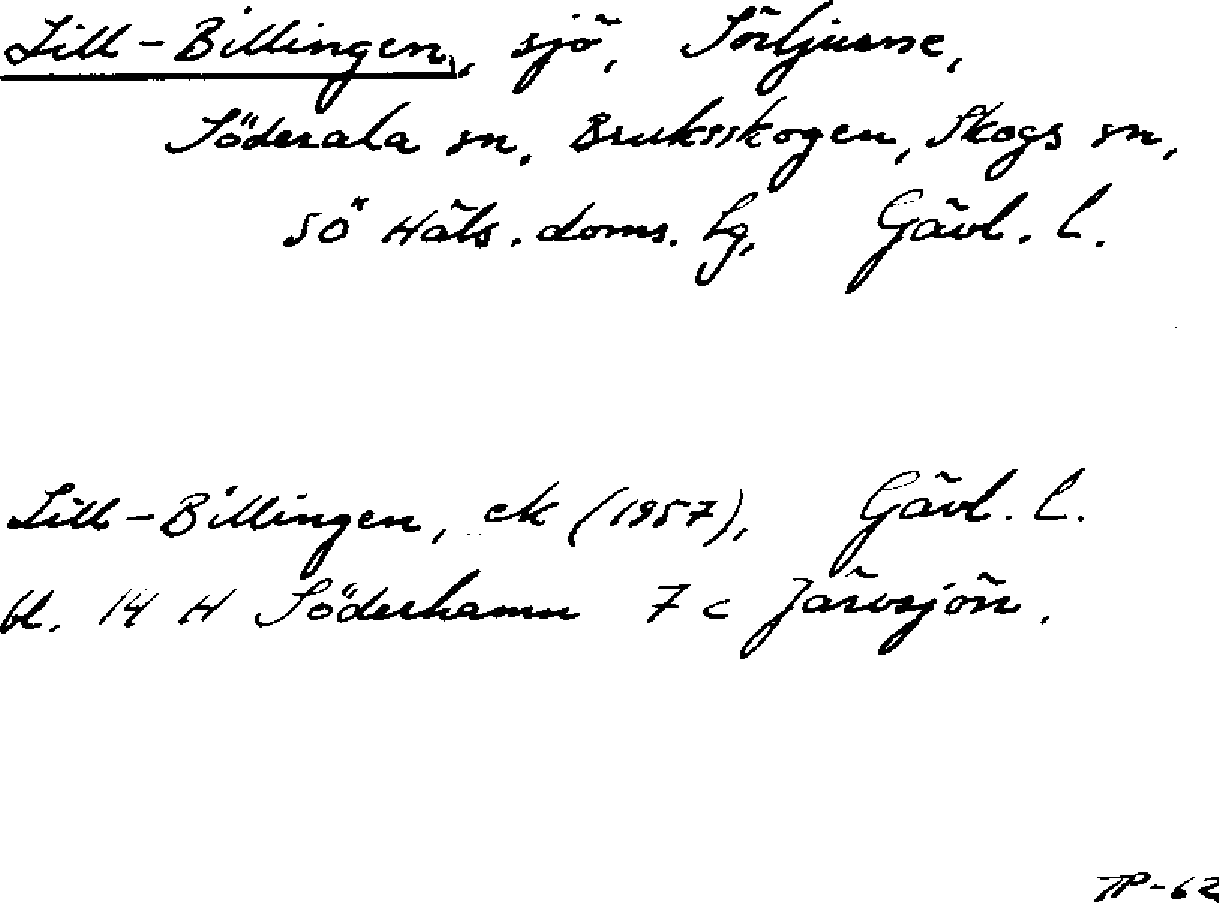 Lill-Billingen, sjö, Sörljusne,
Söderala sn, Bruksskogen, Skogs sn,
SÖ Häls. doms. lg, Gävl. l.
Lill-Billingen, ek (1957), Gävl. l.
bl. 14 H Söderhamn 7 c Järvsjön.
TP-62